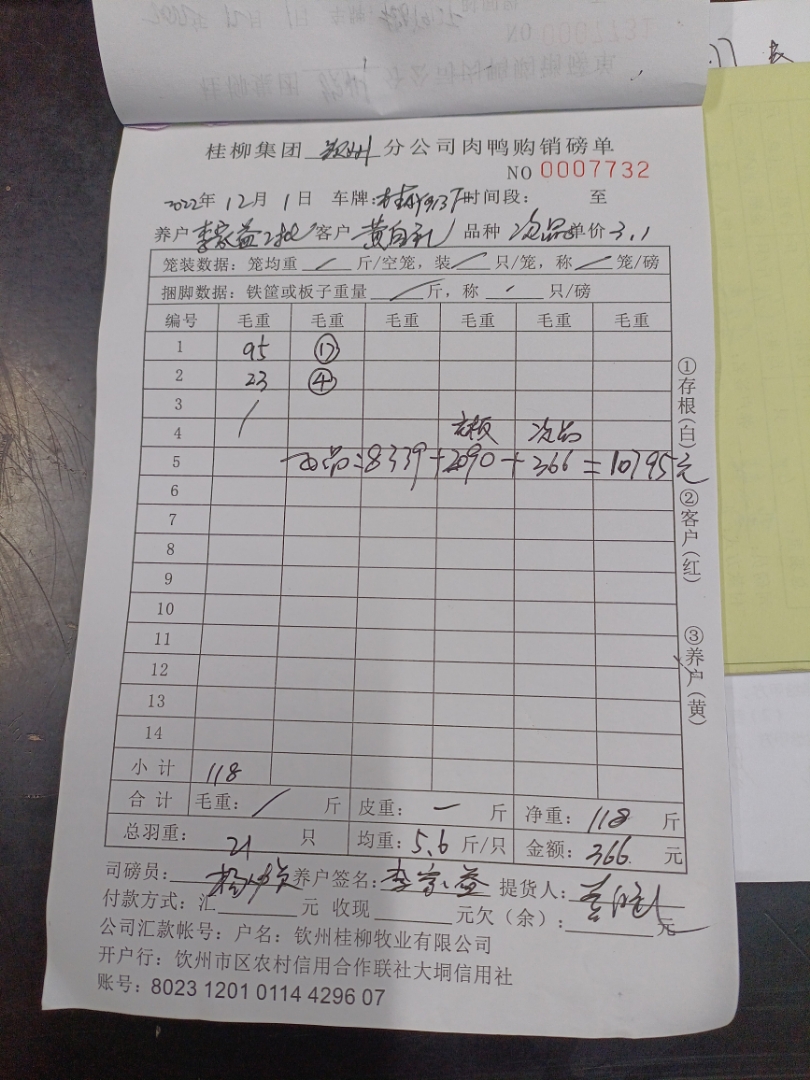 桂柳集团 钦州 分公司肉鸭购销磅单
NO 0007732
2022年 12月 1日 车牌: 时间段: 至
养户 李家益2批 客户 黄自 品种 次品 单价 3.1
笼装数据: 笼均重 / 斤/空笼, 装 / 只/笼, 称 / 笼/磅
捆脚数据: 铁筐或板子重量 / 斤, 称 只/磅
编号 毛重 毛重 毛重 毛重 毛重 毛重
1 95 ⑰
2 23 ④
3 /
4 次品
5 品:8339+2090+366=10795元
6
7
8
9
10
11
12
13
14
小计 118
合计 毛重: / 斤 皮重: 一 斤 净重: 118 斤
总羽重: 21 只 均重: 5.6 斤/只 金额: 366. 元
司磅员: 养户签名: 李家益 提货人:
付款方式: 汇 元 收现 元欠(余): 元
公司汇款帐号: 户名: 钦州桂柳牧业有限公司
开户行: 饮州市区农村信用合作联社大垌信用社
账号: 8023 1201 0114 4296 07
①存根(白)
②客户(红)
③养户(黄)